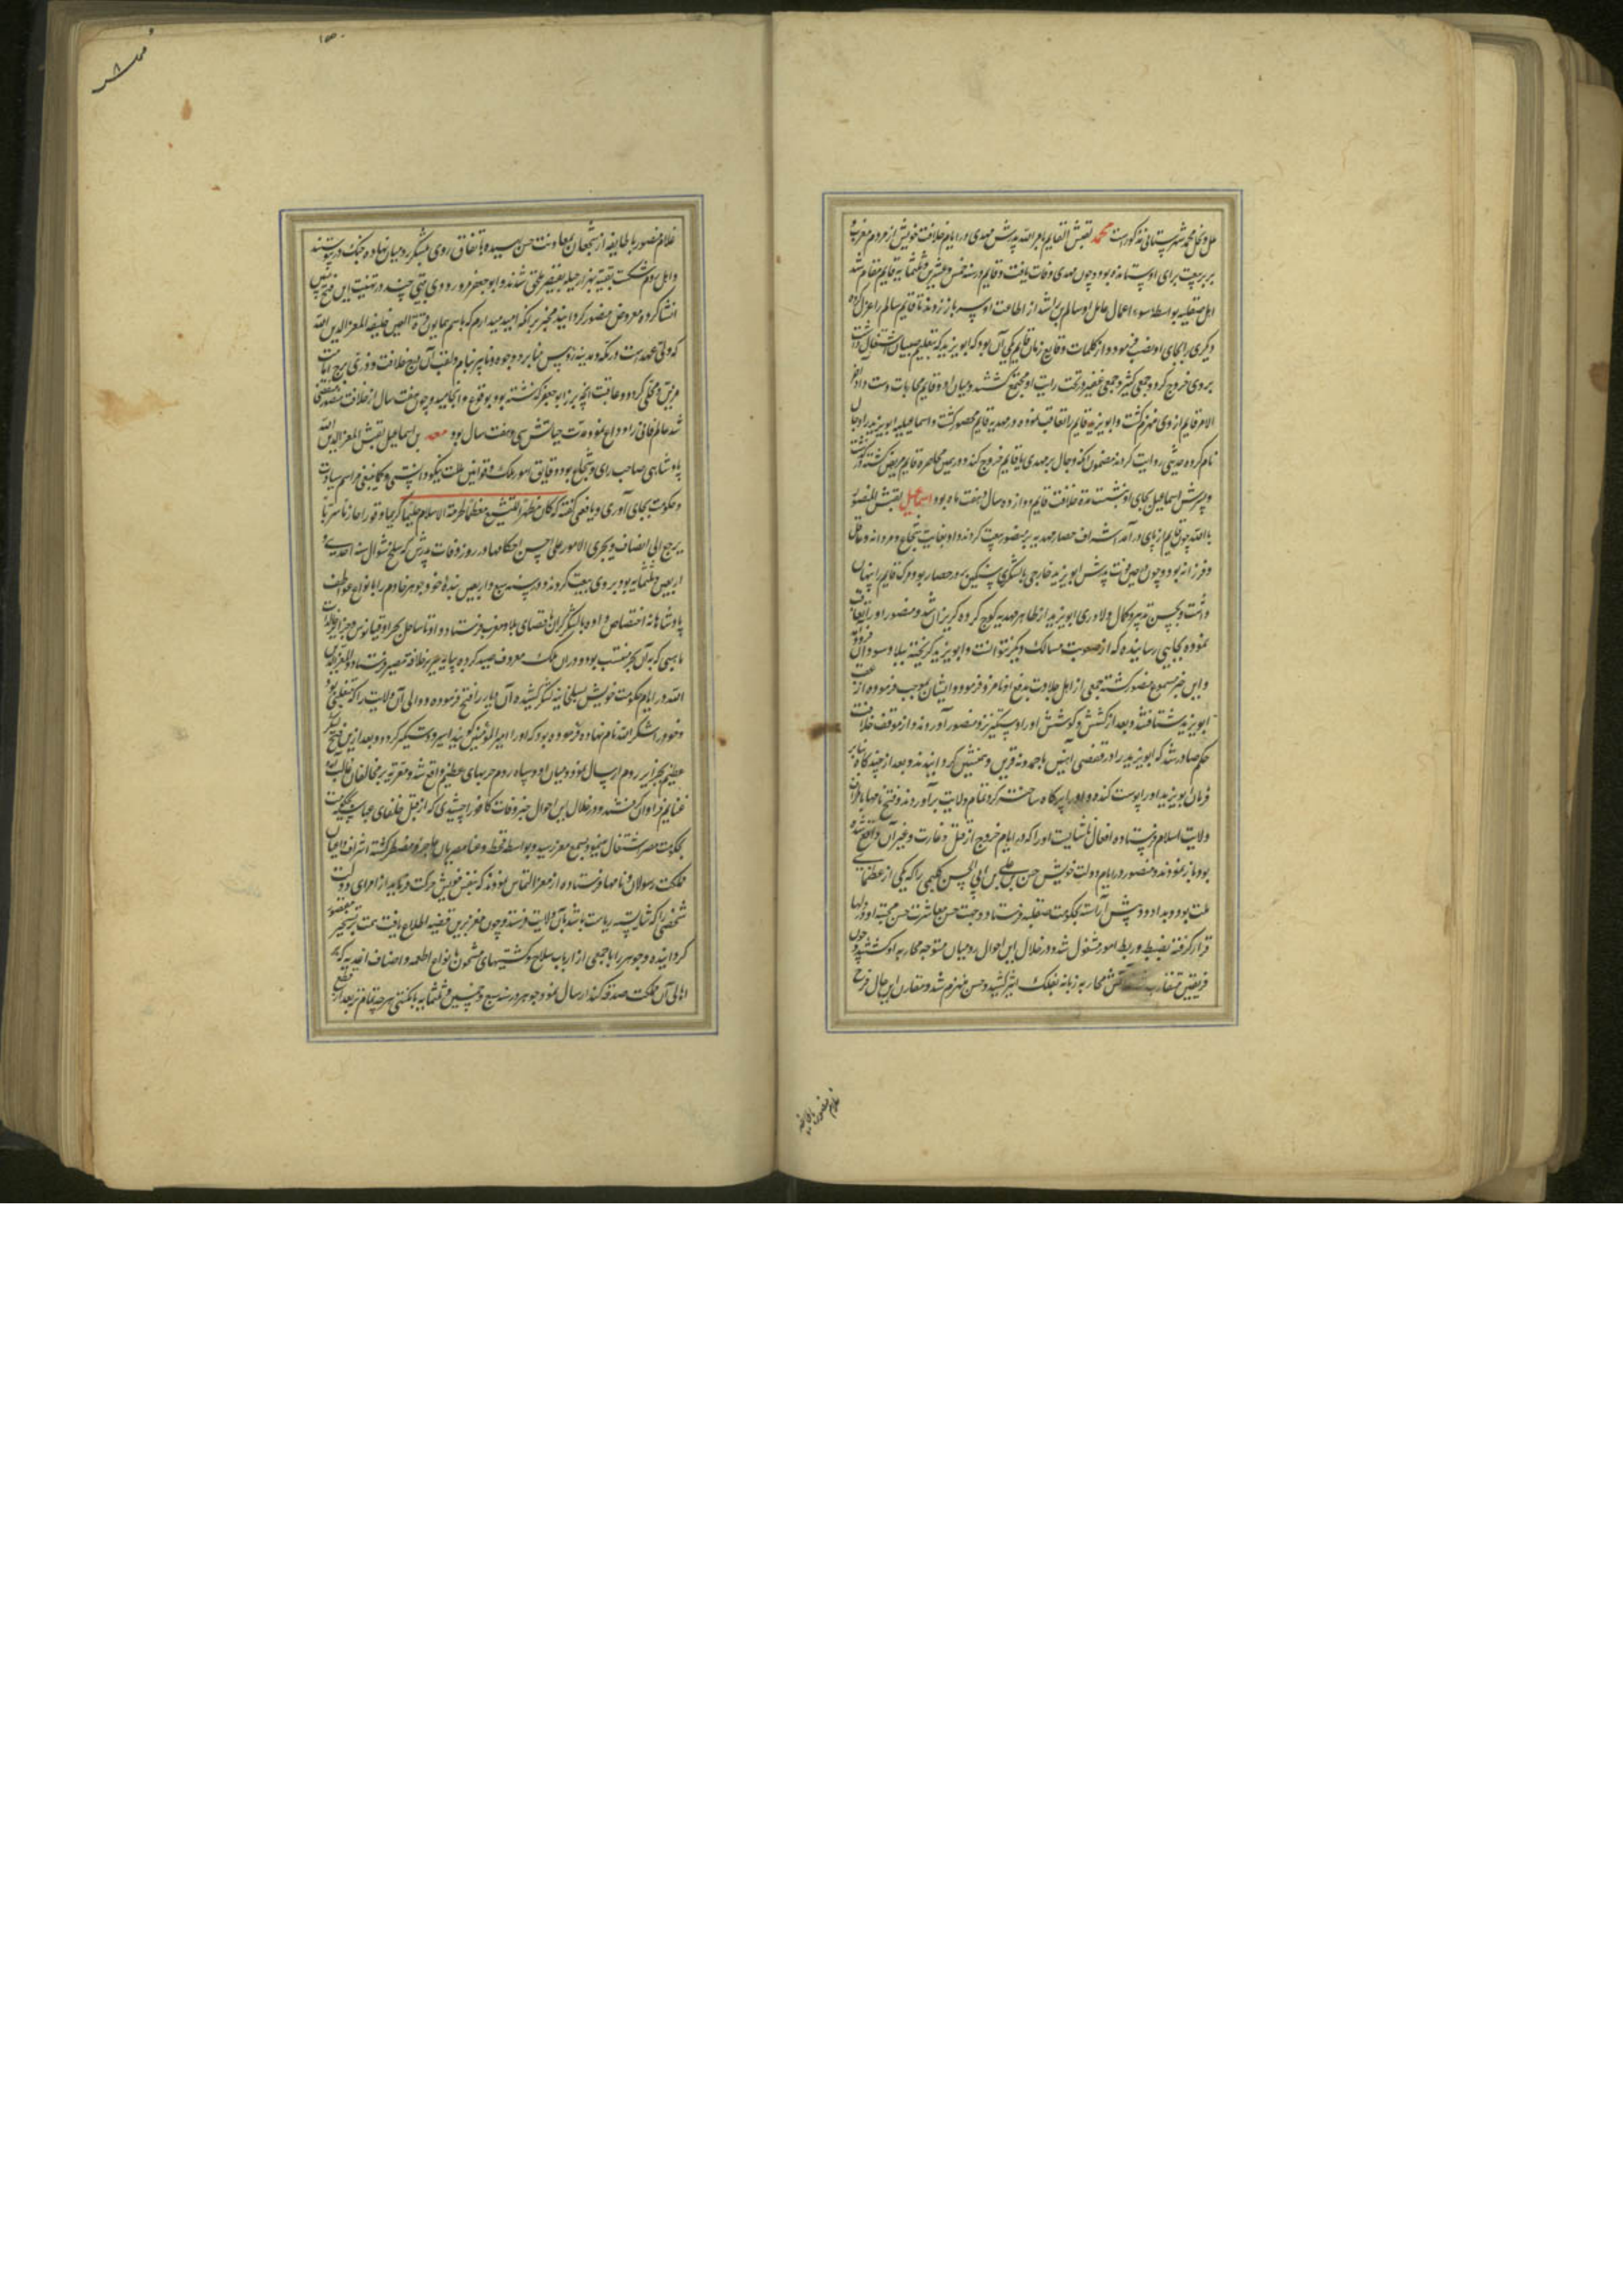 ملل و نحل محمد شهرستانی مذکور است محمد لقبش القایم بامر الله پدرش مهدی در ایام خلافت خویش از مردم مغرب و
بربر بیعت برای او ستانده بود و چون مهدی وفات یافت و قایم در سنه خمس و عشرین و ثلثمایه قایم مقام شد
اهل صقلیه بواسطه سوء اعمال عامل او سالم بن راشد از اطاعت او سر باز زدند تا قایم سالم را عزل کرده
دیگری را بجای او نصب فرمود و از کلمات وقایع زمان قایم یکی آن بود که ابو یزید که بتعلیم صبیان اشتغال داشت
بروی خروج کرد و جمعی کثیر و جمعی غفیر در تحت رایت او مجتمع گشتند و میان او و قایم محاربات دست داد آخر
الامر قایم از وی منهزم گشت و ابو یزید قایم را تعاقب نموده در مهدیه قایم محصور گشت و اسماعیلیه ابو یزید را دجال
نام کرده حدیثی روایت کردند مضمون آنکه دجال بر مهدی یا قایم خروج کند و در حین محاصره قایم مریض گشته در گذشت
و پسرش اسماعیل بجای او بنشست مدة خلافت قایم دوازده سال و هفت ماه بود اسماعیل لقبش المنصور
بالله چون قایم از پای در آمد اشراف حصار مهدیه بر منصور بیعت کردند و او بغایت شجاع و مردانه و عاقل
و فرزانه بود و چون در حین فوت پدرش ابو یزید خارجی با لشکری سنگین بر در حصار بود مرگ قایم را پنهان
داشت و بحسن تدبیر و کمال دلاوری ابو یزید از ظاهر مهدیه کوچ کرده گریزان شد و منصور او را تعاقب
نموده بجایی رسانیده که از صعوبت مسالک دیگر نتوانست و ابو یزید گریخته ببلاد سودان
و این خبر مسموع منصور گشته جمعی از اهل جلادت بدفع او نامزد فرمود و ایشان بموجب فرموده از عقب
ابو یزید شتافتند و بعد از کشش و کوشش او را دستگیر نزد منصور آوردند و از موقف خلافت
حکم صادر شد که ابو یزید را در قفصی آهنین با حمدونه قرین و همنشین گردانیدند و بعد از چند گاه بنابر
فرمان ابو یزید را پوست کنده و او را پر کاه ساختند و گرد تمام ولایت بر آوردند و فتح نامها باطراف
ولایت اسلام فرستاده افعال ناشایست او را که در ایام خروج از قتل و غارت و غیر آن واقع شده
بود باز نمودند و منصور در ایام دولت خویش حسن بن علی بن ابی الحسن کلبی را که یکی از عظمای
ملت بود و بداد و دهش آراسته بحکومت صقلیه فرستاد و جهت حسن معاشرت حسن محبت او در دلها
قرار گرفته بضبط و ربط امور مشغول شد و در خلال این احوال رومیان متوجه محاربه او گشتند و چون
فریقین متقارب شدند آتش محاربه زبانه بفلک اثیر کشید و حسن منهزم شد و مقارن این حال فرج
غلام منصور با طایفه
غلام منصور با طایفه از شجعان بمعاونت حسن رسیده و باتفاق روی بلشکر رومیان نهاده جنگ در پیوستند
و اهل روم شکست یافته بقیه بهزار حیله بقیصر ملحق شدند و ابو جعفر مرورودی بیتی چند در تهنیت این فتح
انشا کرده معروض منصور گردانید مخبر بر آنکه امید میدارم که باسم همایون قرة العین خلیفه المعز لدین الله
که ولی عهد است در مکه و مدینه رؤس منابر و وجوه دنانیر بنام و لقب آن درج خلافت و دری برج امامت
مزین و محلی گردد و عاقبت آنچه بر زبان جعفر گذشته بود بوقوع انجامید و چون هفت سال از خلافت منصور منقضی
شد عالم فانی را وداع نمود مدت حیاتش سی و هفت سال بود معد بن اسماعیل لقبش المعز لدین الله
پادشاهی صاحب رای و شجاع بود و دقایق امور ملک و قوانین ملت نیکو دانستی و کما ینبغی مراسم سیاست
و حکومت بجای آوردی و یافعی گفته که کان مظهرا للتشیع معظما لحرمة الاسلام حلیما کریما وقورا حازما سریا
یرجع الی انصاف و یجری الامور علی احسن احکامها در روز وفات پدرش که سلخ شوال سنه احدی و
اربعین و ثلثمایه بود بر وی بیعت کردند و در سنه سبع و اربعین بنده خود جوهر خادم را بانواع عواطف
پادشاهانه اختصاص داده با لشکر گران باقصای بلاد مغرب فرستاد و او تا ساحل بحر اوقیانوس و جزایر خالدات
ماهیی که بدان بحر منسوب بود و در آن ملک معروف صید کرده بپایه سریر خلافت مصیر فرستاد و المعز لدین
الله در ایام حکومت خویش بسلجماسه لشکر کشیده آن دیار را فتح فرموده و والی آن ولایت را که متغلبی بود
و خود را شاکر لله نام نهاده فرموده بود که او را امیر المؤمنین گویند اسیر و دستگیر کرد و بعد ازین فتح لشکر
عظیم بجزایر روم ارسال نمود و میان او و سپاه روم حربهای عظیم واقع شد و معزیه بر مخالفان غالب آمده
غنایم فراوان گرفتند و در خلال این احوال خبر وفات کافور اخشیدی که از قبل خلفای عباسیه بحکومت
بحکومت مصر اشتغال مینمود بسمع معز رسید و بواسطه قحط و غلا مصریان عاجز و مضطر گشته اشراف و اعیان
مملکت رسولان و نامها فرستاده از معز التماس نمودند که بنفس خویش حرکت فرماید یا از امرای دولت
شخصی را که شایسته ریاست باشد بآن ولایت فرستد و چون معز برین قضیه اطلاع یافت همت بر تسخیر مقصور
گردانیده و جوهر را با جمعی از ارباب سلاح و کشتیهای مشحون بانواع اطعمه و اصناف اغذیه که بر
اهالی آن مملکت صدقه کند ارسال نمود و جوهر در سنه سبع و خمسین و ثلثمایه بامکنتی هر چه تمامتر بعد از قطع